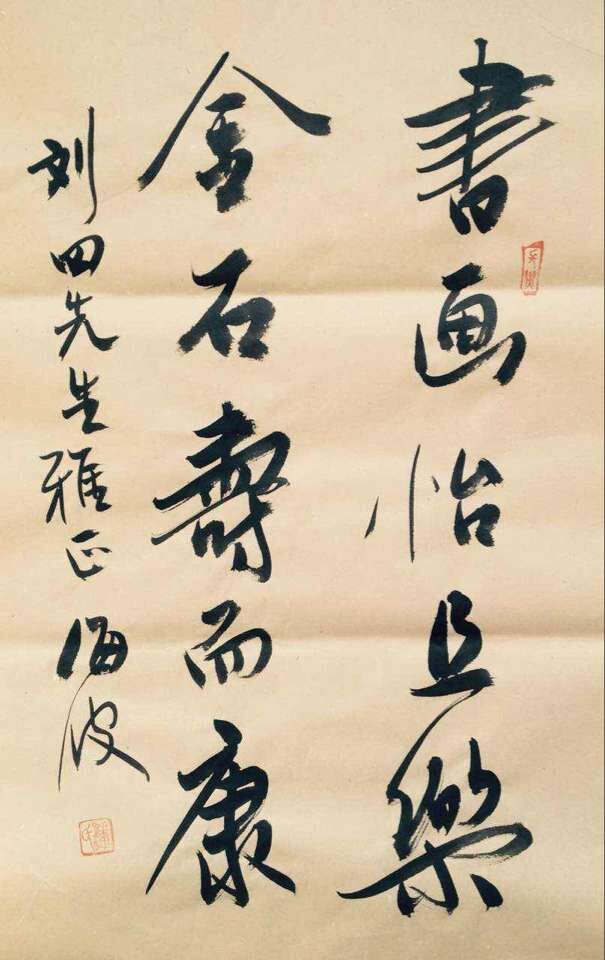 書画怡且樂
金石壽而康
刘四先生雅正 海波